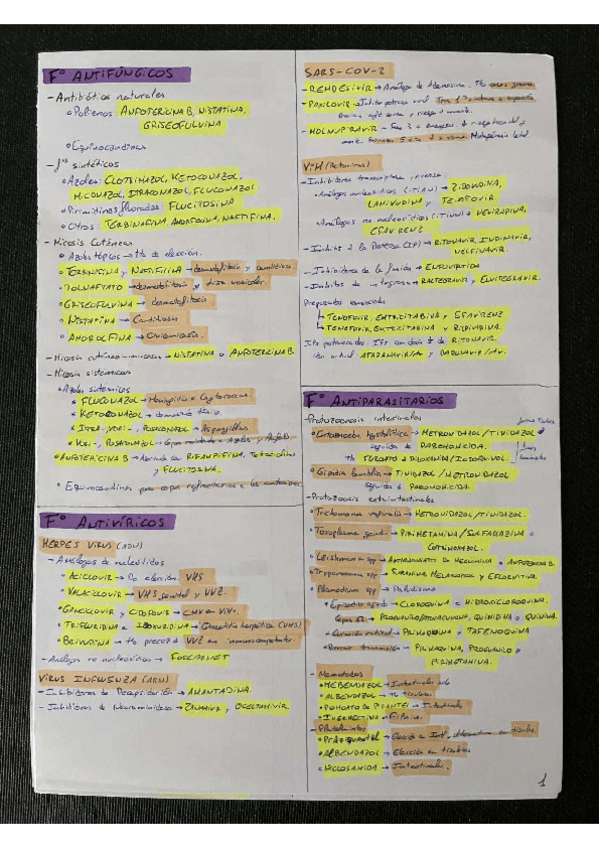 Fº ANTIFÚNGICOS
- Antibióticos naturales
Polienos: ANFOTERICINA B, NISTATINA,
GRISEOFULVINA
Equinocandinas
- sintéticos
Azoles: CLOTIMAZOL, KETOCONAZOL,
MICONAZOL, ITRACONAZOL, FLUCONAZOL
Pirimidinas fluoradas: FLUCITOSINA
Otros: TERBINAFINA, AMOROLFINA, NAFTIFINA.
- Micosis Cutáneas
Azoles tópicos → tto de elección.
TERBINAFINA y NAFTIFINA → dermatofitosis y candidiasis.
TOLNAFTATO → dermatofitosis y tiza versicolor.
GRISEOFULVINA → dermatofitosis
NISTATINA → Candidiasis
AMOROLFINA → Onicomicosis.
- Micosis cutáneo-mucosas → NISTATINA o ANFOTERICINA B.
- Micosis sistémicas
Azoles sistémicos
FLUCONAZOL → Meningitis Cryptococcus
KETOCONAZOL →
ITRA-, VORI-, POSACONAZOL → Aspergillus
ANFOTERICINA B → con RIFAMPICINA, Tetraciclina
y FLUCITOSINA.
Equinocandinas para refractarias a las anteriores.
Fº ANTIVÍRICOS
HERPES VIRUS (ADN)
- Análogos de nucleótidos
ACICLOVIR → De elección. VHS
VALACICLOVIR → VHS genital y VVZ.
GANCICLOVIR y CIDOFOVIR → CMV en VIH.
TRIFLURIDINA e IDOXURIDINA → Queratitis herpética (VHS)
BRIVUDINA → tto precoz VVZ en inmunocompetentes.
- Análogos no nucleosídicos → FOSCARNET
VIRUS INFLUENZA (ARN)
- Inhibidores de Decapsidación → AMANTADINA.
- Inhibidores de Neuraminidasa → ZANAMIVIR y OSELTAMIVIR.
SARS-COV-2
- REMDESIVIR → Análogo de Adenosina.
- PAXLOVID →
- MOLNUPIRAVIR →
VIH (Retrovirus)
- Inhibidores transcriptasa inversa.
Análogos nucleosídicos (ITIAN) → ZIDOVUDINA,
LAMIVUDINA y TENOFOVIR
Análogos no nucleosídicos (ITINN) → NEVIRAPINA,
EFAVIRENZ
- Inhib de la Proteasa (IP) → RITONAVIR, INDINAVIR,
NELFINAVIR
- Inhibidores de la fusión → ENFUVIRTIDA
- Inhibidores de integrasa → RALTEGRAVIR y ELVITEGRAVIR.
Preparados
TENOFOVIR, EMTRICITABINA y EFAVIRENZ
TENOFOVIR, EMTRICITABINA y RILPIVIRINA.
IPs potenciados: IPs con dosis de RITONAVIR
Fº ANTIPARASITARIOS
- Protozoosis intestinales
Entamoeba hystolitica → METRONIDAZOL/TINIDAZOL
seguidos de PAROMOMICINA.
Tto FUROATO DILOXANIDA/IODOQUINOL
Giardia lamblia → TINIDAZOL/METRONIDAZOL
seguidos de PAROMOMICINA.
- Protozoosis extraintestinales
Trichomona vaginalis → METRONIDAZOL/TINIDAZOL.
Toxoplasma gondii → PIRIMETAMINA/SULFADIAZINA o
COTRIMOXAZOL.
Leishmania spp → ANTIMONIATO DE MEGLUMINA o ANFOTERICINA B
Trypanosoma spp → SURAMINA MELARSOPROL y EFLORNITINA.
Plasmodium spp → Paludismo
Episodio agudo → CLOROQUINA o HIDROXICLOROQUINA.
PROGUANILO/ATOVACUONA, QUINIDINA o QUININA.
Curación radical → PRIMAQUINA y TAFENOQUINA
transmisión → PRIMAQUINA, PROGUANILO o
PIRIMETAMINA.
- Nematodos
MEBENDAZOL → Intestinales
ALBENDAZOL → tisulares
PAMOATO DE PIRANTEL → Intestinales
IVERMECTINA → Filarias.
- Platelmintos
PRAZIQUANTEL → Elección en Int,
ALBENDAZOL → Elección en tisulares
NICLOSAMIDA → Intestinales.
1